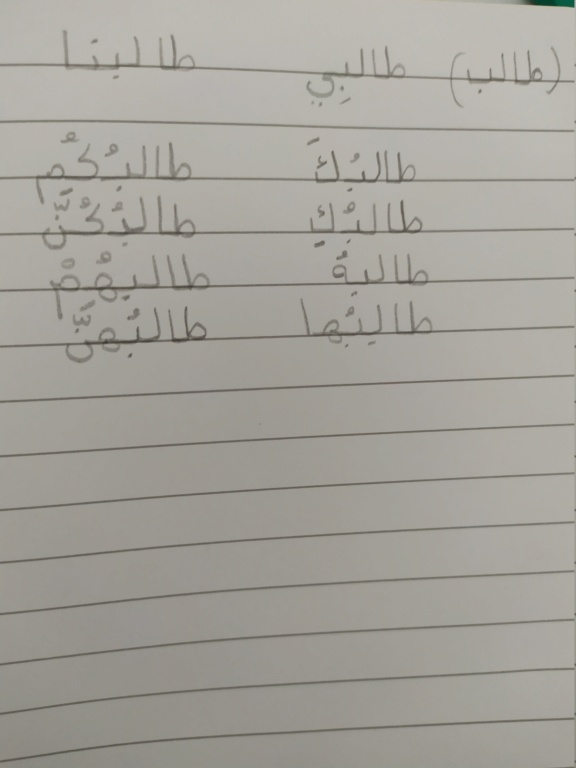 (طالب) طالبي طالبنا
طالبُكَ طالبُكُم
طالبُكِ طالبُكُنَّ
طالبهُ طالبهُمْ
طالبُها طالبُهنَّ